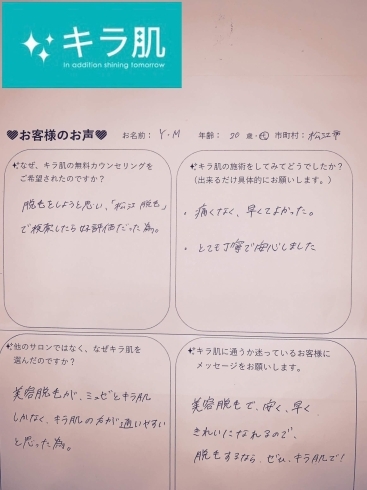 キラ肌
In addition shining tomorrow
♥お客様のお声♥ お名前: Y・M 年齢: 20 歳・代 市町村: 松江市
なぜ、キラ肌の無料カウンセリングを
ご希望されたのですか?
脱毛をしようと思い、「松江 脱毛」
で検索したら好評価だった為。
キラ肌の施術をしてみてどうでしたか?
(出来るだけ具体的にお願いします。)
・痛くなく、早くてよかった。
・とても丁寧で安心しました
他のサロンではなく、なぜキラ肌を
選んだのですか?
美容脱毛が、ミュゼとキラ肌
しかなく、キラ肌の方が通いやすい
と思った為。
キラ肌に通うか迷っているお客様に
メッセージをお願いします。
美容脱毛で、安く、早く
きれいになれるので、
脱毛するなら、ぜひ、キラ肌で!